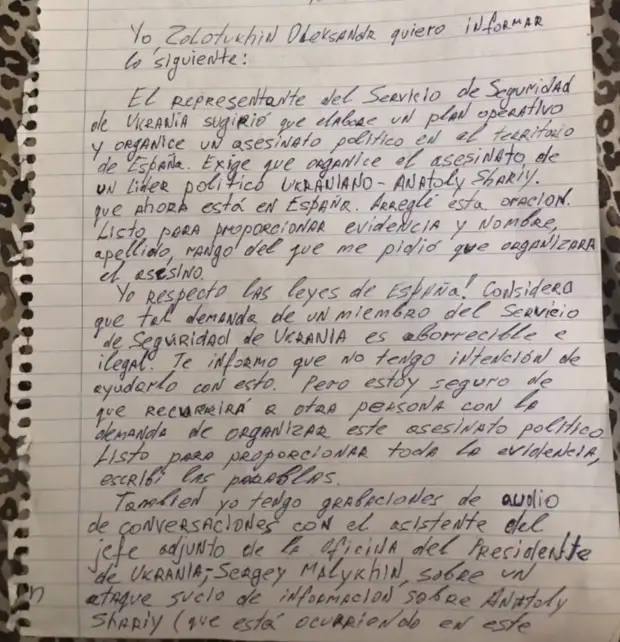 Yo Zolotukhin Oleksandr quiero informar
lo siguiente:
El representante del Servicio de Segumidad
de Ukrania sugirió que elabore un plan operativo
y organice un asesinato político en el territorio
de España. Exige que organice el asesinato de
un lider político ukraniano - Anatoly Shariy.
que ahora está en España. Arreglé esta oracion.
Listo para proporcionar evidencia y nombre,
apellido, rango del que me pidió que organizara
el asesino
Yo respecto las leyes de España! Considero
que tal demanda de un miembro del Servicio
de Seguridad de Ukrania es aborrecible e
ilegal. Te informo que no tengo intención de
ayudarlo con esto. Pero estoy seguro de
que recurrirá a otra persona con la
demanda de organizar este asesinato político
Listo para proporcionar toda la evidencia,
escribí las parablas.
Tambien yo tengo grabaciones de audio
de conversaciones con el asistente del
jefe adjunto de la oficina del Presidente
de Ukrania, Sergey Malykhin, sobre un
ataque sucio de informacion sobre Anatoly
Shariy (que está ocurriendo en este